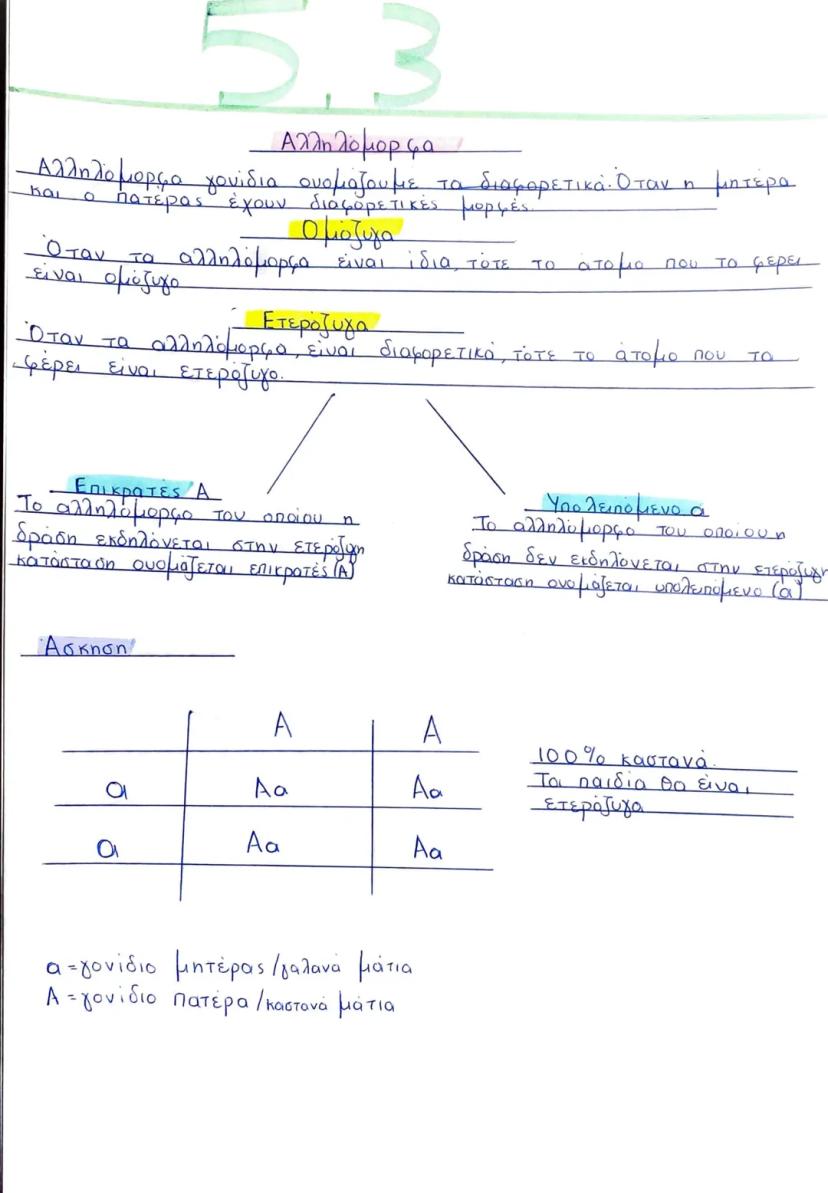 5.3
Αλληλόμορφα
Αλληλόμορφα γονίδια ονομάζουμε τα διαφορετικά. Όταν η μητέρα
και ο πατέρας έχουν διαφορετικές μορφές.
Ομόζυγα
Όταν τα αλληλόμορφα είναι ίδια, τότε το άτομο που το φέρει
είναι ομόζυγο
Ετερόζυγα
Όταν τα αλληλόμορφα, είναι διαφορετικά, τότε το άτομο που τα
φέρει είναι ετερόζυγο.
Επικρατές Α
Το αλληλόμορφο του οποίου η
δράση εκδηλόνεται στην ετερόζυγη
κατάσταση ονομάζεται επικρατές (Α)
Υπολειπόμενο α
Το αλληλόμορφο του οποίου η
δράση δεν εκδηλόνεται στην ετερόζυγη
κατάσταση ονομάζεται υπολειπόμενο (α)
Άσκηση
Α Α
α Αα Αα
α Αα Αα
100% καστανά.
Τα παιδία θα είναι
ετερόζυγα
α = γονίδιο μητέρας/γαλανά μάτια
Α = γονίδιο πατέρα/καστανά μάτια